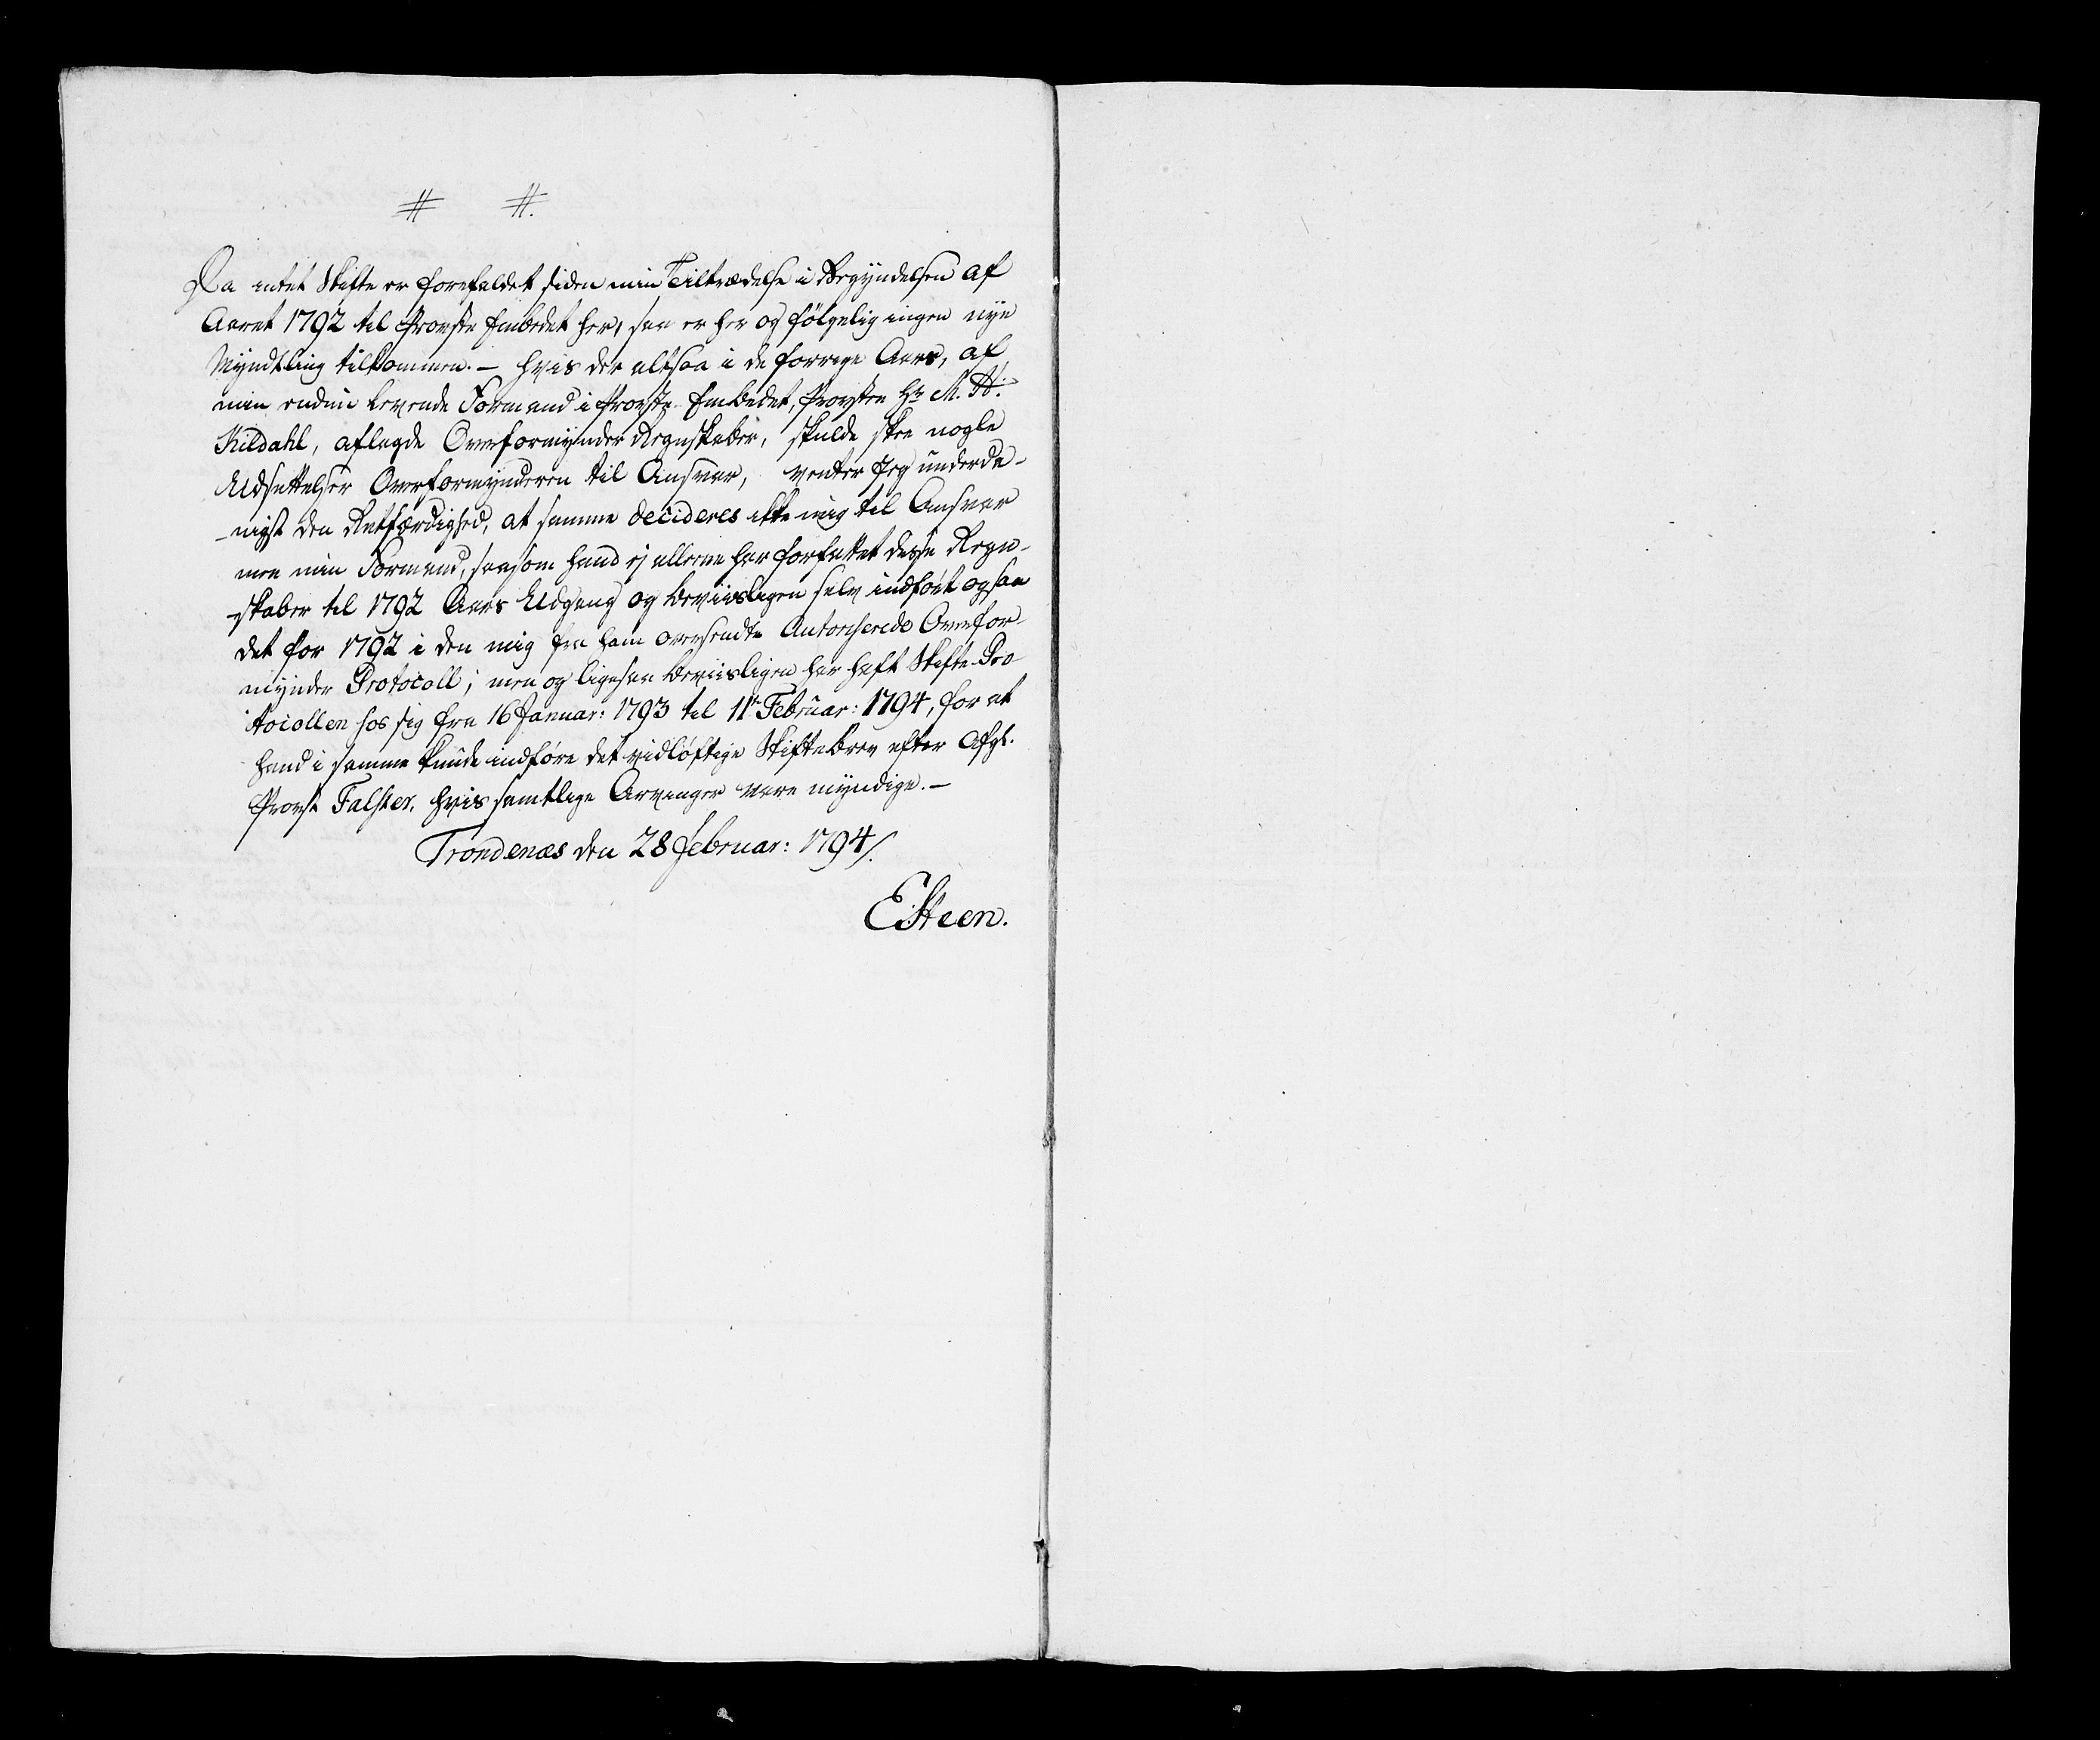 # #.
Da intet Skifte er forefaldet siden min Tiltrædelse i Begyndelsen af
Aaret 1792 til Provste Embedet her, saa er her og følgelig ingen nye
Myndtling tilkommen. – Hvis der altsaa i de forrige Aars, af
min endnu levende Formand i Provste-Embedet, Provsten Hr M. H:
Kildahl, aflagde Overformynder Regnskaber, skulde skee nogle
Udsættelser Overformynderen til Ansvar, venter Jeg underda-
-nigst den Retfærdighed, at samme decideres ikke mig til Ansvar
men min Formand, saasom hand ej alleene har forfattet disse Regn-
-skaber til 1792 Aars Udgang og beviisligen selv indført ogsaa
det for 1792 i den mig fra ham oversendte Autoriserede Overfor-
mynder Protocoll; men og ligesaa beviisligen har haft Skifte-Pro
tocollen hos sig fra 16 Januar: 1793 til 11te Februar: 1794, for at
hand i samme kunde indføre det vidløftige Skiftebrev efter Afgl.
Provst Falster, hvis samtlige Arvinger vare myndige. –
Trondenæs den 28 Februar: 1794/.
E Steen.